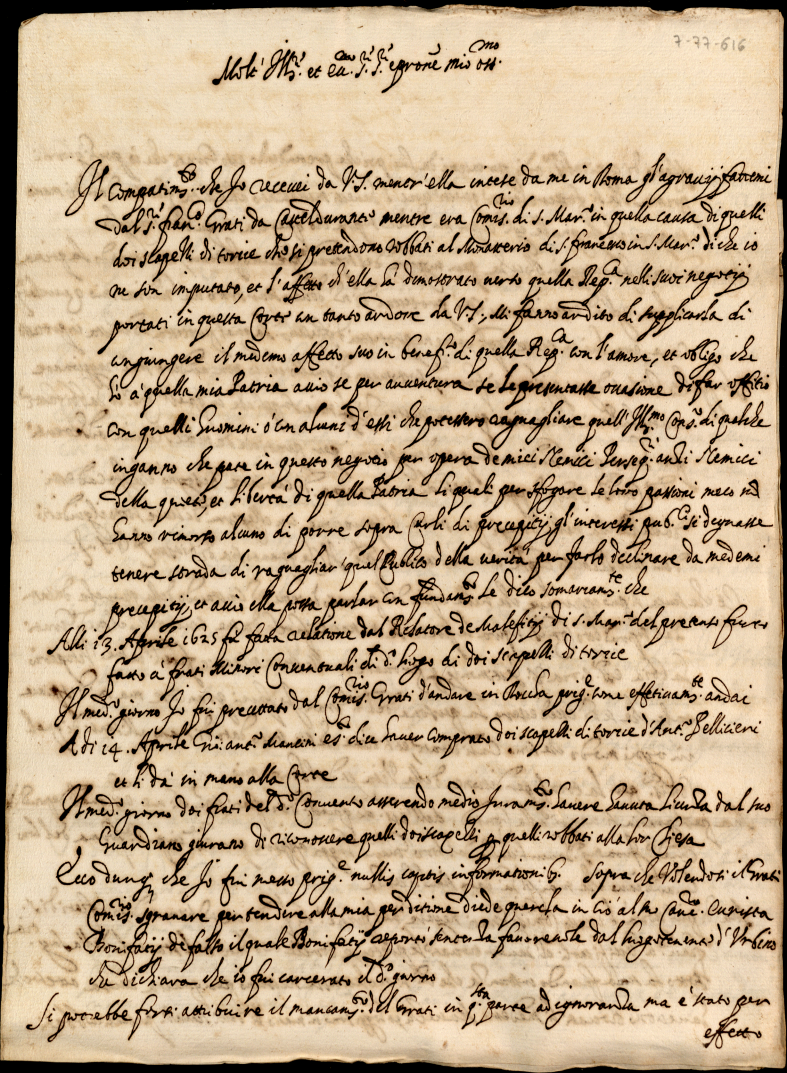 7-77-616
Molt' Ill.re et ecc.mo S.r S.r e prone mio oss.mo
Il compatim.to che Jo receuei da V.S. mentr'ella intese da me in Roma gl'agrauij fattemi
dal S.r Fran.co Grati da Casteldurante mentre era Comis.rio di S. Mar.o in quella causa di quelli
doi scapelli di torcie che si pretendono robbati al Monasterio di S. francesco in S. Mar.o di che io
ne son imputato, et l'affetto ch'ella ha dimostrato uerso quella Rep.ca nelli suoi negotij
portati in questa Corte con tanto ardore da V.S., Mi fanno ardito di supplicarla di
congiungere il medemo affetto suo in benef.o di quella Rep.ca con l'amore, et obligo che
ho à quella mia Patria accio se per auuentura se le presentasse occasione di far offitio
con quelli Huomini ò con alcuni d'essi che potessero raguagliare quell' Ill.mo Cons.o di qualche
inganno che pate in questo negotio per opera de miei Nemici Perseg.ri anzi Nemici
della quiete, et libertà di quella Patria li quali per sfogare le loro passioni meco nõ
hanno rimorso alcuno di porre sopra Carli di precipitij gl'interessi pub.ci si degnasse
tenere strada di raguagliar quel Publico della uerità per farlo declinare da medemi
precipitij, et accio ella possa parlar con fundam.to le dico somariam.te che
Alli 13. Aprile 1625 fu fatta relatione dal Relatore de Malefitij di S. Mar.o del pretenso furto
fatto à frati Minori Conuentuali di d.o luogo di doi scapelli di torcie
Il med.o giorno Jo fui precettato dal Comis.rio Grati d'andare in Roccha prig.e come effettiuam.te andai
A di 14. Aprile Gio: ant.o Mancini es.to dice hauer comprato doi scapelli di torcie d'Ant.o Pellicieri
et li dà in mano alla Corte
Il med.o giorno doi frati del d.o Conuento asserendo medio Juram.to hauere hauuta licenza dal suo
Guardiano giurano di riconoscere quelli doi scapelli p quelli robbati alla lor Chiesa
Ecco dunq, che Jo fui messo prig.e nullis captis informationib. Sopra che Volendosi il Grati
Comis.rio sgranare per tendere alla mia perditione diede querela in ciò al s.r Canc.re Curista
Bonifatij di falso il quale Bonifatij reportò sentenza fauoreuole dal luogotenente d'Urbino
che dichiara che io fui carcerato il d.o giorno
Si potrebbe forsi attribuire il mancam.to del Grati in q.sta parte ad ignoranza ma è stato per
effetto